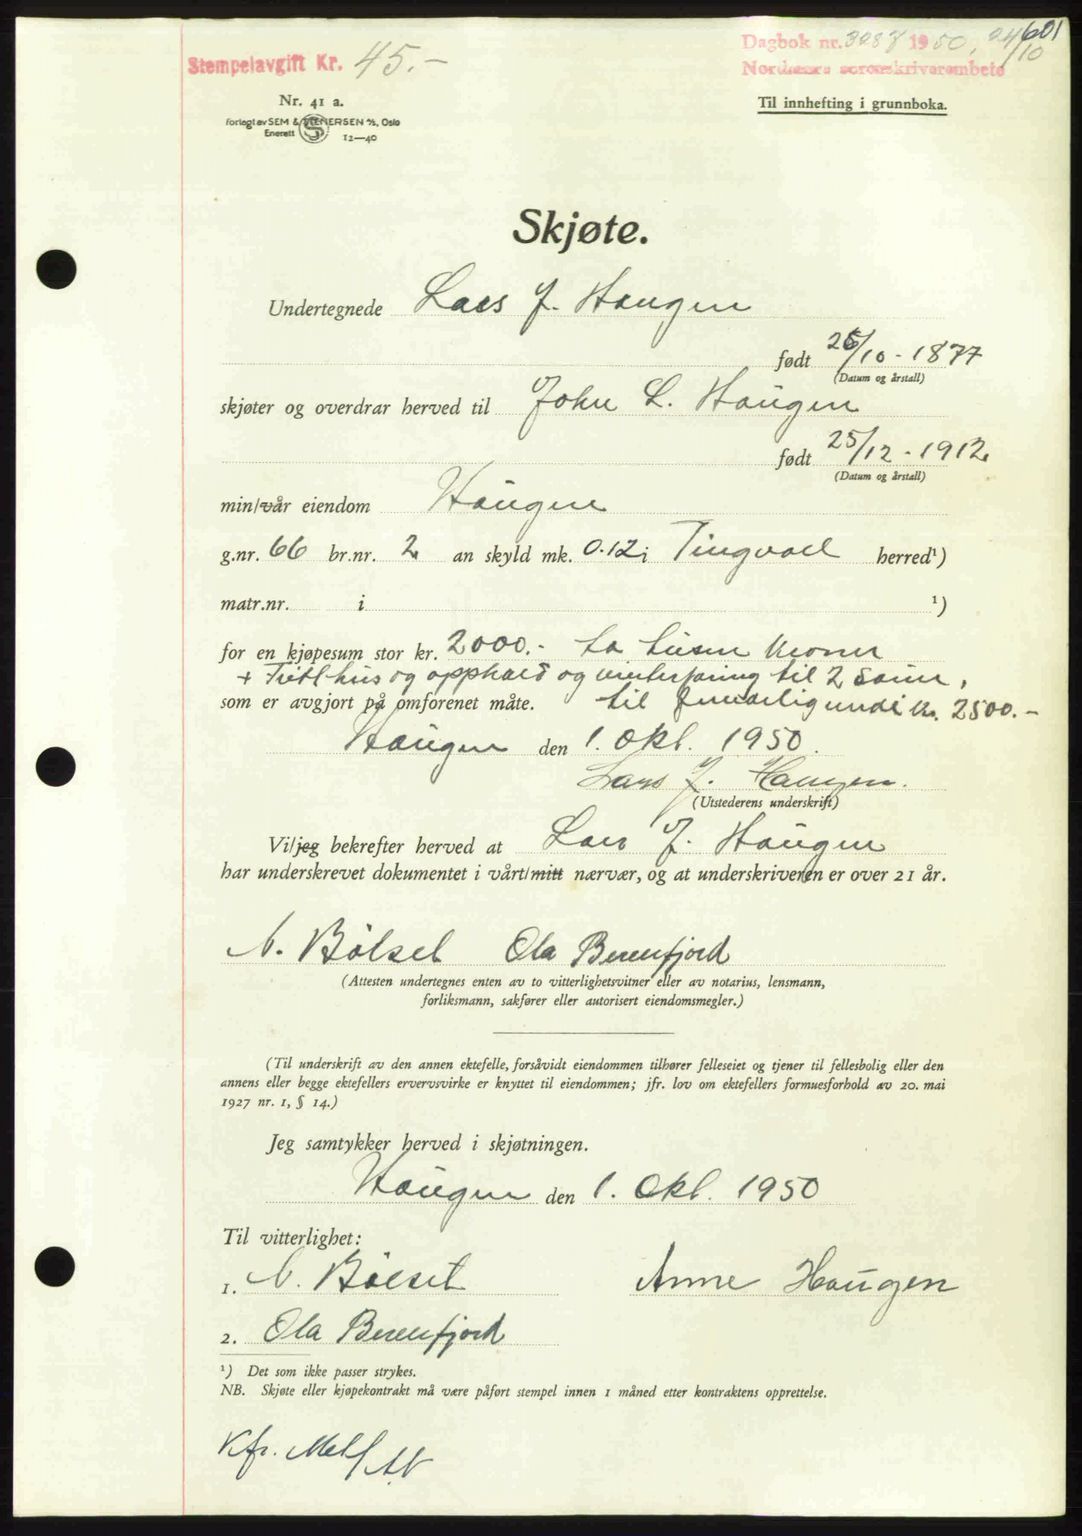 601
Dagbok nr. 3287 1950, 24/10
Stempelavgift Kr. 45.-
Nordmøre sorenskriverembete
Nr. 41 a.
Til innhefting i grunnboka.
Forlagt av SEM & STENERSEN A/S, Oslo
Enerett 12—40
Skjøte.
Undertegnede Lars J. Haugen
født 26/10 - 1877
(Datum og årstall)
skjøter og overdrar herved til John L. Haugen
født 25/12 - 1912.
(Datum og årstall)
min/vår eiendom Haugen
g.nr. 66 br.nr. 2 an skyld mk. 0.12 i Tingvoll herred¹)
matr.nr. i ¹)
for en kjøpesum stor kr. 2000.- to tusen kroner
+ Fritt hus og opphold og vinterforing til 2 sauer,
som er avgjort på omforenet måte. til kr. 2500.-
Haugen den 1. okt. 1950.
Lars J. Haugen.
(Utstederens underskrift)
Vi/jeg bekrefter herved at Lars J. Haugen
har underskrevet dokumentet i vårt/mitt nærvær, og at underskriveren er over 21 år.
N. Bölset Ola Berenfjord
(Attesten undertegnes enten av to vitterlighetsvitner eller av notarius, lensmann,
forliksmann, sakfører eller autorisert eiendomsmegler.)
(Til underskrift av den annen ektefelle, forsåvidt eiendommen tilhører felleseiet og tjener til fellesbolig eller den
annens eller begge ektefellers ervervsvirke er knyttet til eiendommen; jfr. lov om ektefellers formuesforhold av 20. mai
1927 nr. 1, § 14.)
Jeg samtykker herved i skjøtningen.
Haugen den 1. Okt. 1950
Til vitterlighet:
1. N. Bölset Anne Haugen
2. Ola Berenfjord
¹) Det som ikke passer strykes.
NB. Skjøte eller kjøpekontrakt må være påført stempel innen 1 måned etter kontraktens opprettelse.
Kfr.